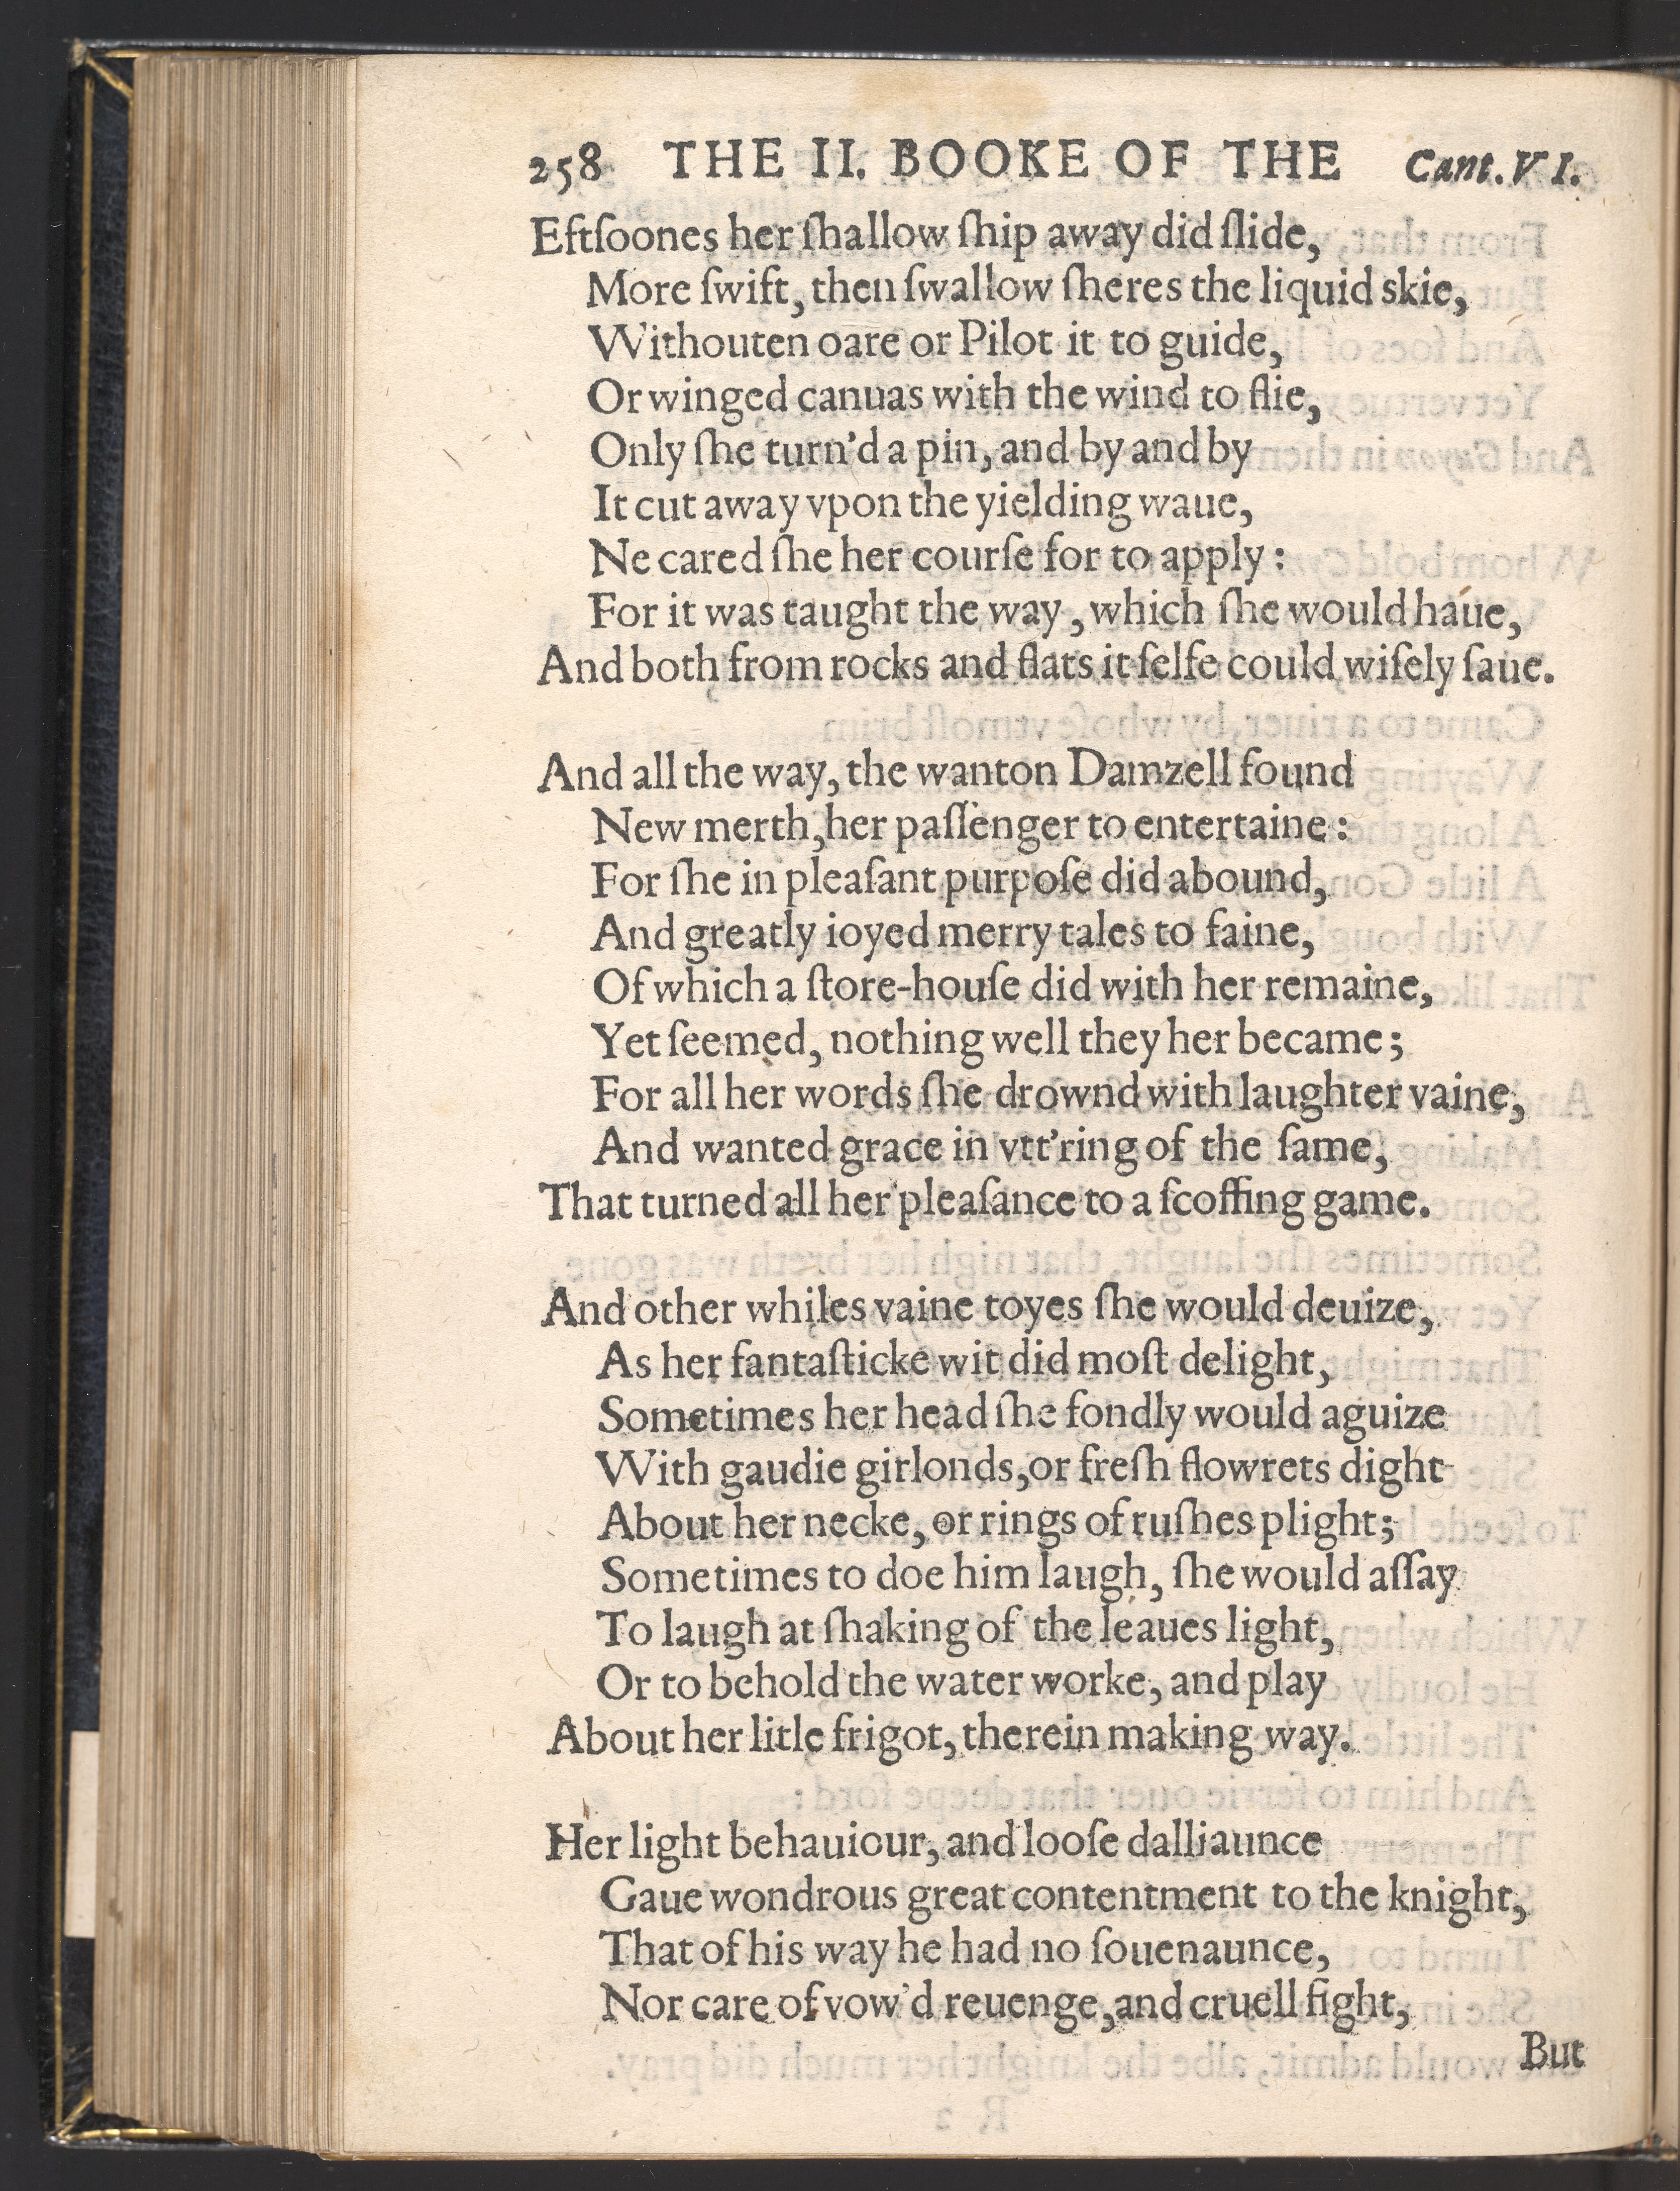 258 THE II. BOOKE OF THE Cant. VI.
Eftſoones her ſhallow ſhip away did ſlide,
More ſwift, then ſwallow ſheres the liquid skie,
Withouten oare or Pilot it to guide,
Or winged canuas with the wind to flie,
Only ſhe turn'd a pin, and by and by
It cut away vpon the yielding waue,
Ne cared ſhe her courſe for to apply:
For it was taught the way, which ſhe would haue,
And both from rocks and flats it ſelfe could wiſely ſaue.
And all the way, the wanton Damzell found
New merth, her paſſenger to entertaine:
For ſhe in pleaſant purpoſe did abound,
And greatly ioyed merry tales to faine,
Of which a ſtore-houſe did with her remaine,
Yet ſeemed, nothing well they her became;
For all her words ſhe drownd with laughter vaine,
And wanted grace in vtt'ring of the ſame,
That turned all her pleaſance to a ſcoffing game.
And other whiles vaine toyes ſhe would deuize,
As her fantaſticke wit did moſt delight,
Sometimes her head ſhe fondly would aguize
With gaudie girlonds, or freſh flowrets dight
About her necke, or rings of ruſhes plight;
Sometimes to doe him laugh, ſhe would aſſay
To laugh at ſhaking of the leaues light,
Or to behold the water worke, and play
About her litle frigot, therein making way.
Her light behauiour, and looſe dalliaunce
Gaue wondrous great contentment to the knight,
That of his way he had no ſouenaunce,
Nor care of vow'd reuenge, and cruell fight,
But